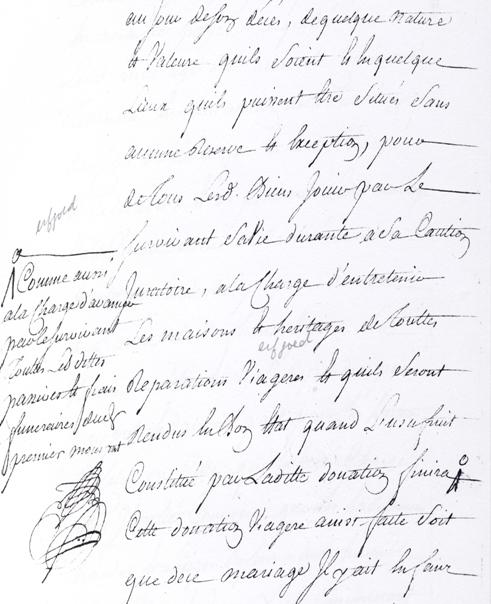 au jour de son deces, de quelque nature
et Valeure quils soient et en quelque
Lieux quils puissent être situés sans
aucune Reserve et Exception, pour
de tous Lesd. Biens Jouir par Le
Survivant sa Vie durante, a sa Caution
Juratoire, a la Charge d'entretenir
Les maisons et heritages de touttes
Reparations Viageres et quils Seront
Rendus en Bon Etat quand L'usufruit
Constitué par Laditte donation finira
Cette donation Viagere ainsi faite soit
que dece mariage Il y ait Enfans
Comme aussi
a la Charge d'avancer
par le Survivant
Toutes Les dettes
passives et frais
funeraires dud.
premier mourant